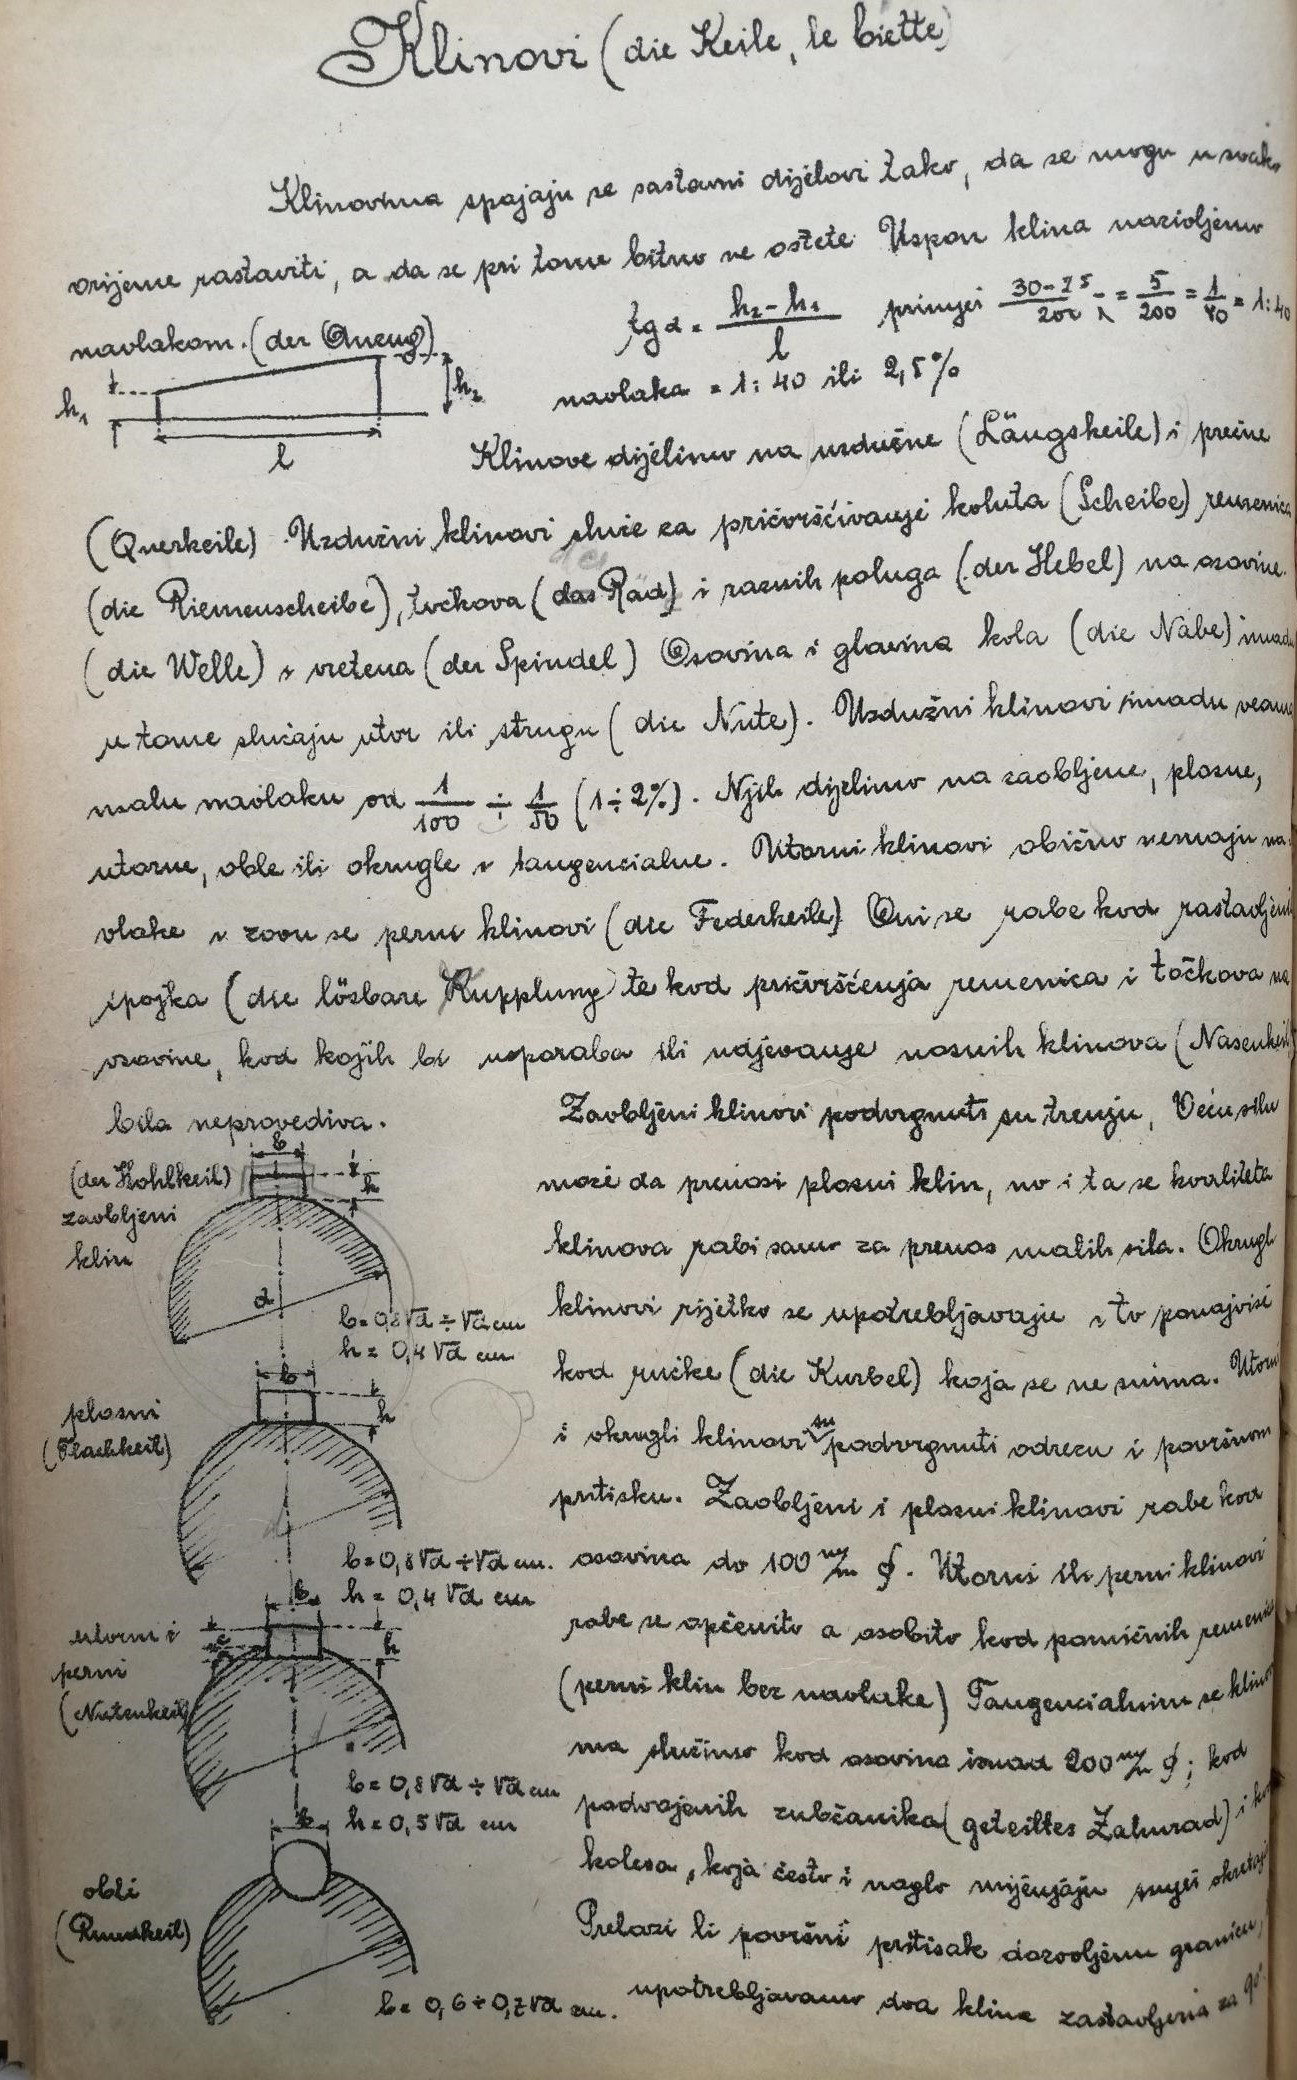 Klinovi (die Keile, le biette)
Klinovima spajaju se sastavni dijelovi tako, da se mogu u svako
vrijeme rastaviti, a da se pri tome bitno ne oštete Uspon klina nazivljemo
navlakom. (der Anzug)
tg α = h₂ - h₁ / l primjer 30-25 / 200 = 5/200 = 1/40 = 1:40
h₁ h₂
l
navlaka = 1:40 ili 2,5%
Klinove dijelimo na uzdužne (Längskeile) i prečne
(Querkeile) Uzdužni klinovi služe za pričvršćivanje koluta (Scheibe) remenica
(die Riemenscheibe), točkova (das Rad) i raznih poluga (der Hebel) na osovine
(die Welle) i vretena (der Spindel) Osovina i glavina kola (die Nabe) imadu
u tome slučaju utor ili strugu (die Nute). Uzdužni klinovi imadu veoma
malu navlaku od 1/100 ÷ 1/50 (1÷2%). Njih dijelimo na zaobljene, plosne,
utorne, oble ili okrugle i tangencialne. Utorni klinovi obično nemaju na-
vlake i zovu se perni klinovi (die Federkeile) Oni se rabe kod rastavljeni
spojka (die lösbare Kupplung) te kod pričvršćenja remenica i točkova na
osovine, kod kojih bi uporaba ili udjevanje nosnih klinova (Nasenkeil)
bila neprovediva.
Zaobljeni klinovi podvrgnuti su trenju, Veću silu
može da prenosi plosni klin, no i ta se kvaliteta
klinova rabi samo za prenos malih sila. Okrugli
klinovi rijetko se upotrebljavaju i to ponajviše
kod ručke (die Kurbel) koja se ne snima. Utorni
i okrugli klinovi su podvrgnuti odrezu i površnom
pritisku. Zaobljeni i plosni klinovi rabe kod
osovina do 100 m/m ∅. Utorni ili perni klinovi
rabe se općenito a osobito kod pomičnih remenica
(perni klin bez navlake) Tangencialnim se klinovi
ma služimo kod osovina iznad 200 m/m ∅; kod
podvojenih zubčanika (geteiltes Zahnrad) i kod
kolesa, koja često i naglo mijenjaju smjer okretaja
Prelazi li površni pritisak dozvoljenu granicu,
upotrebljavamo dva klina zastavljena za 90°.
b
(der Hohlkeil)
zaobljeni
klin
h
d
b = 0,8√d ÷ √d cm
h = 0,4√d cm
b
plosni
(Flachkeil)
h
d
b = 0,8√d ÷ √d cm.
h = 0,4√d cm
b
utorni i
perni
(Nutenkeil)
h
d
b = 0,8√d ÷ √d cm
h = 0,5√d cm
b
obli
(Rundkeil)
d
b = 0,6 ÷ 0,7√d cm.